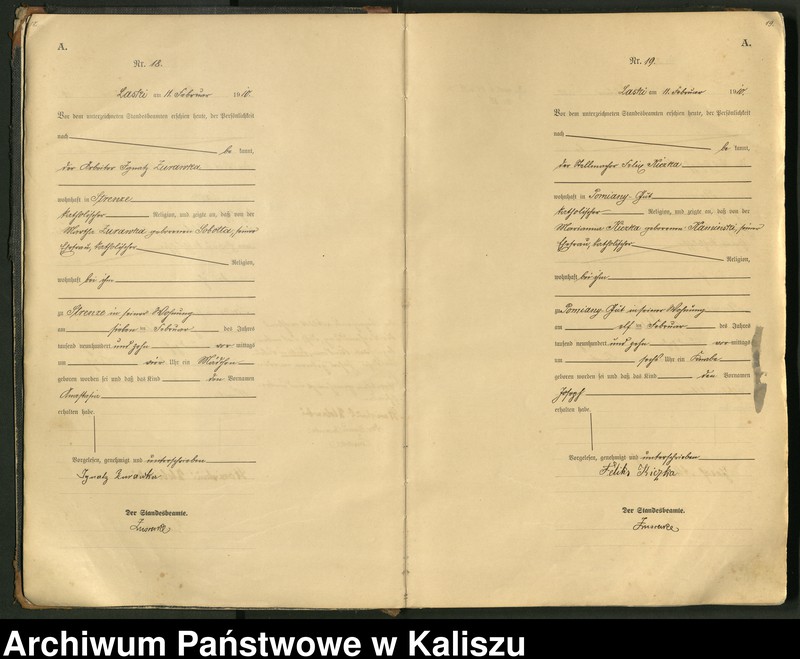 A.
Nr. 18.
Laski am 11. Februar 1910.
Vor dem unterzeichneten Standesbeamten erschien heute, der Persönlichkeit
nach
be kannt,
der Arbeiter Ignatz Zurawka
wohnhaft in Strenze
katholischer Religion, und zeigte an, daß von der
Martha Zurawka geborenen Sobotta, seiner
Ehefrau, katholischer
Religion,
wohnhaft bei ihm
zu Strenze in seiner Wohnung
am sieben ten Februar des Jahres
tausend neunhundert und zehn vor mittags
um vier Uhr ein Mädchen
geboren worden sei und daß das Kind den Vornamen
Anastasia
erhalten habe.
Vorgelesen, genehmigt und unterschrieben
Ignatz Zurawka
Der Standesbeamte.
19.
A.
Nr. 19.
Laski am 11. Februar 1910.
Vor dem unterzeichneten Standesbeamten erschien heute, der Persönlichkeit
nach
be kannt,
der Stellmacher Felix Kiczka
wohnhaft in Pomiany-Gut
katholischer Religion, und zeigte an, daß von der
Marianna Kiczka geborenen Kaminski, seiner
Ehefrau, katholischer
Religion,
wohnhaft bei ihm
zu Pomiany Gut in seiner Wohnung
am elf ten Februar des Jahres
tausend neunhundert und zehn vor mittags
um sechs Uhr ein Knabe
geboren worden sei und daß das Kind den Vornamen
Joseph
erhalten habe.
Vorgelesen, genehmigt und unterschrieben
Feliks Kiczka
Der Standesbeamte.
Archiwum Państwowe w Kaliszu